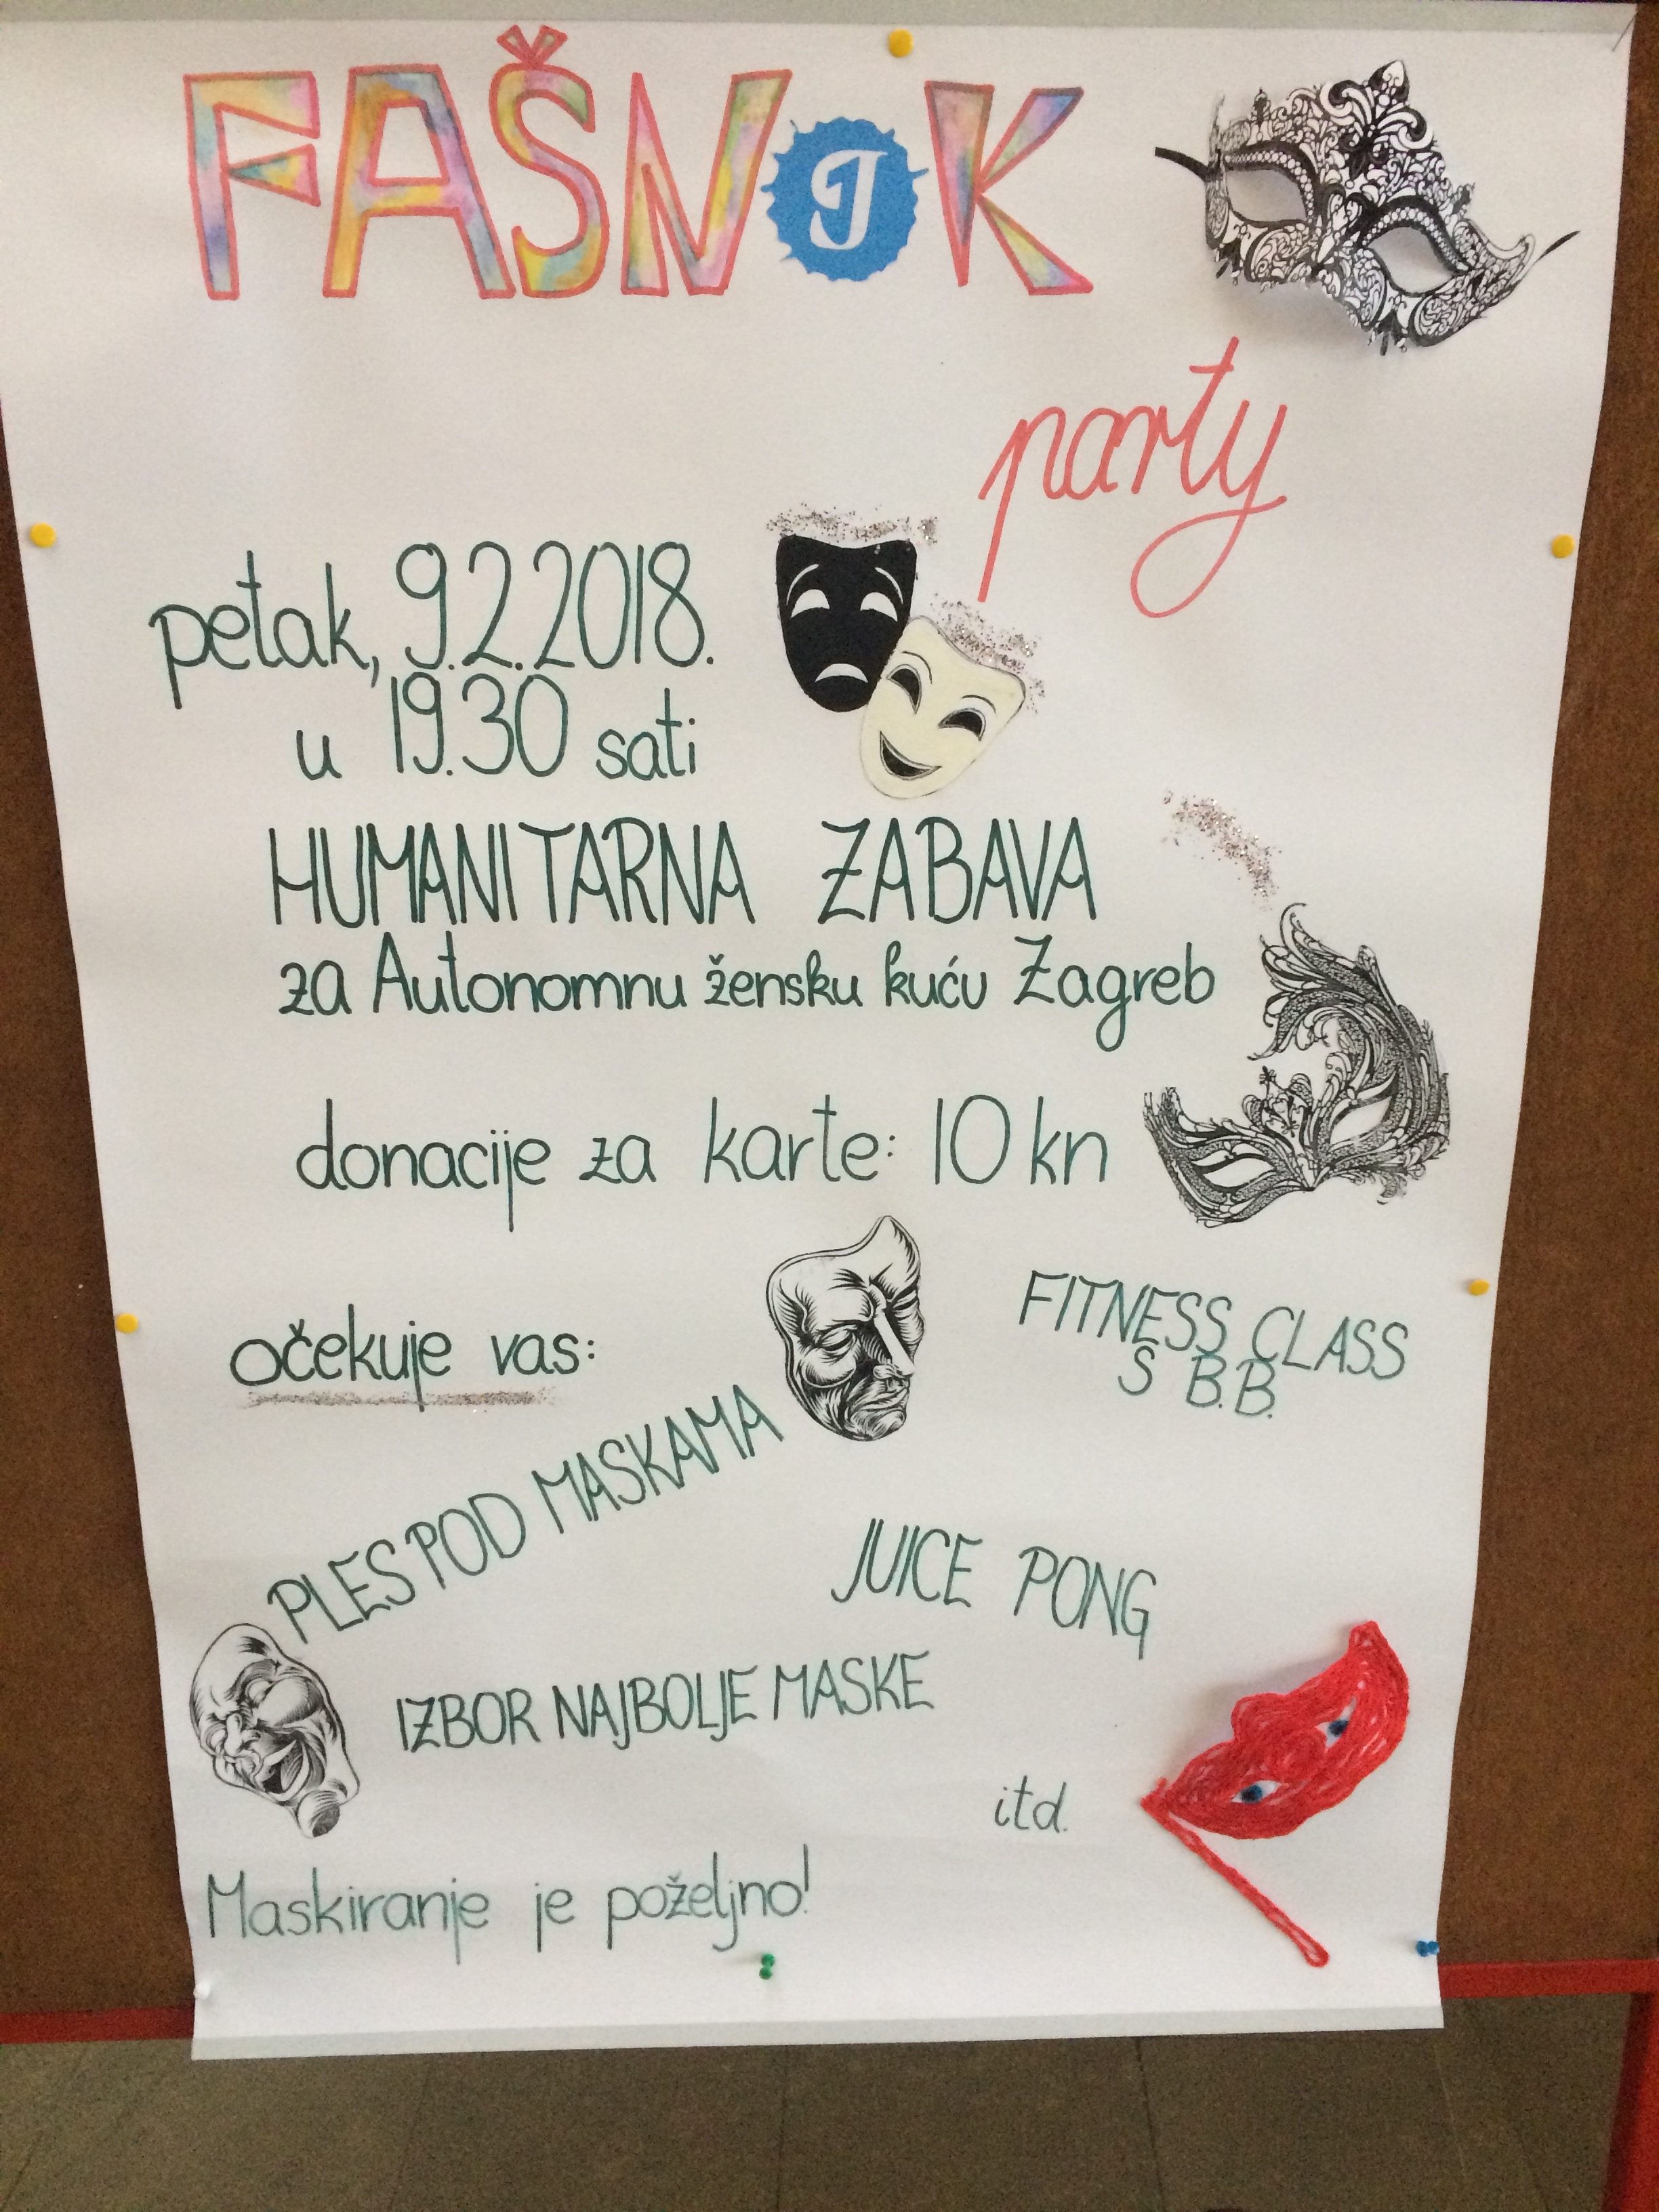 FAŠNIK
party
petak, 9.2.2018.
u 19.30 sati
HUMANITARNA ZABAVA
za Autonomnu žensku kuću Zagreb
donacije za karte: 10 kn
očekuje vas:
FITNESS CLASS
S B.B.
PLES POD MASKAMA
JUICE PONG
IZBOR NAJBOLJE MASKE
itd.
Maskiranje je poželjno!